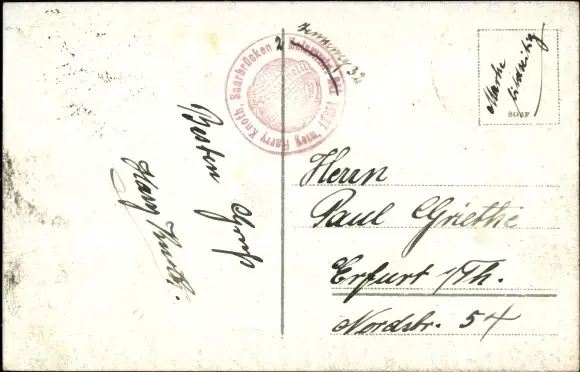 Besten
Gruß
Harry Knoth.
Harry Knoth, Saarbrücken 2
Marke
SOAF
Herrn
Paul Griethe
Erfurt /Th.
Nordstr. 54